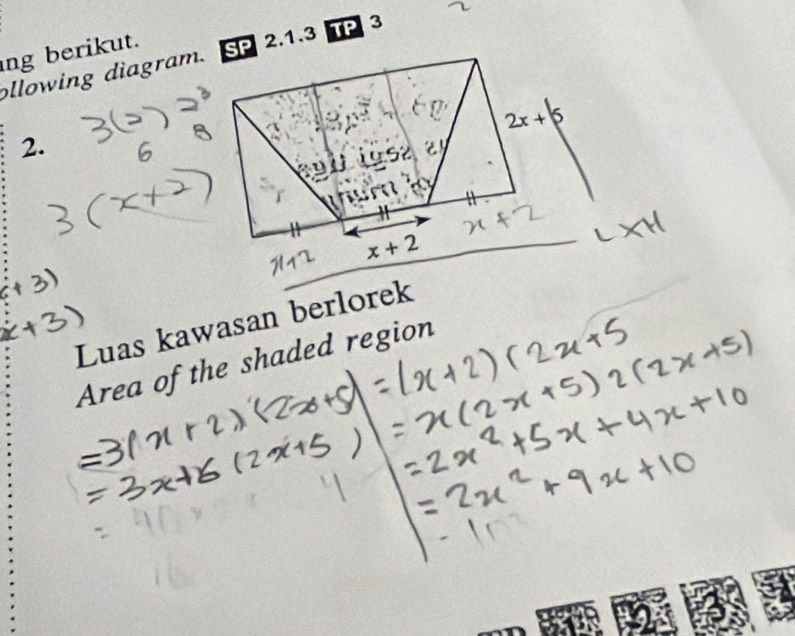 ng berikut.
ollowing diagram. SP 2.1.3 TP 3
2.
3(2) 2³
6 8
3(x+2)
2x + 5
x + 2
x+2
x+2
L×H
x+3)
x+3)
Luas kawasan berlorek
Area of the shaded region
=3(x+2)(2x+5)
=3x+6(2x+5)
=(x+2)(2x+5
=x(2x+5)2(2x+5)
=2x²+5x+4x+10
=2x²+9x+10
1 2 3 4